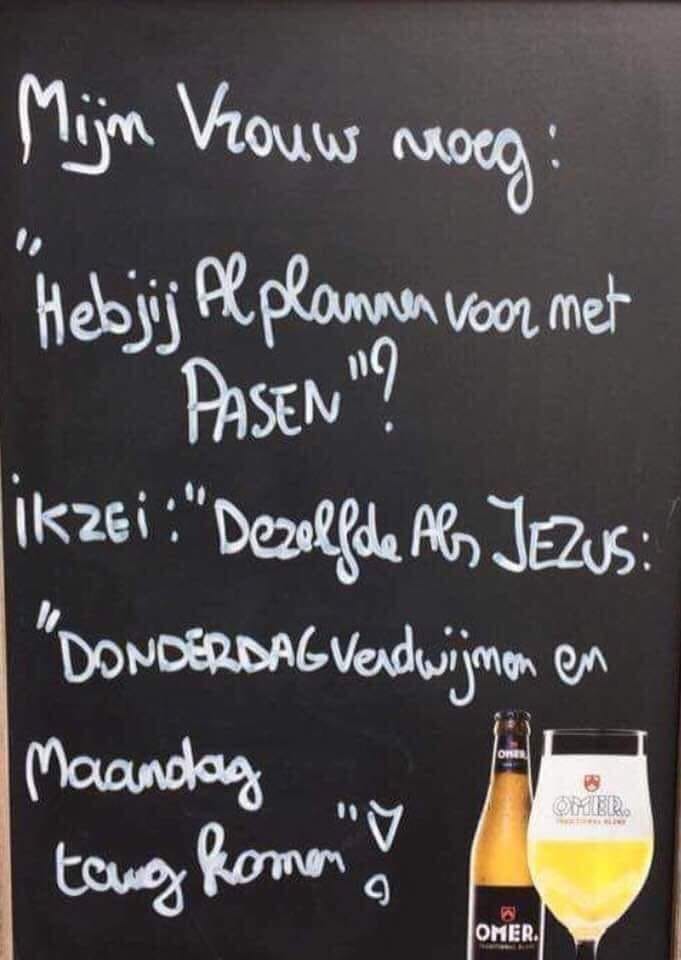 Mijn Vrouw vroeg:
"Heb jij Al plannen voor met
PASEN"?
iK ZEi: "Dezelfde Als JEZUS:
"DONDERDAG Verdwijnen en
Maandag
terug komen"!
OMER.
OMER.
TRADITIONAL BLOND
OMER.
TRADITIONAL BLOND